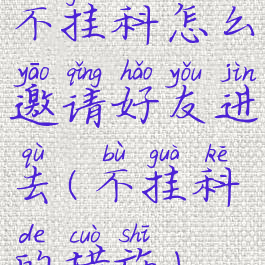 不挂科怎么
yāo qǐng hǎo yǒu jìn
邀请好友进
qù bù guà kē
去(不挂科
de cuò shī
的措施)